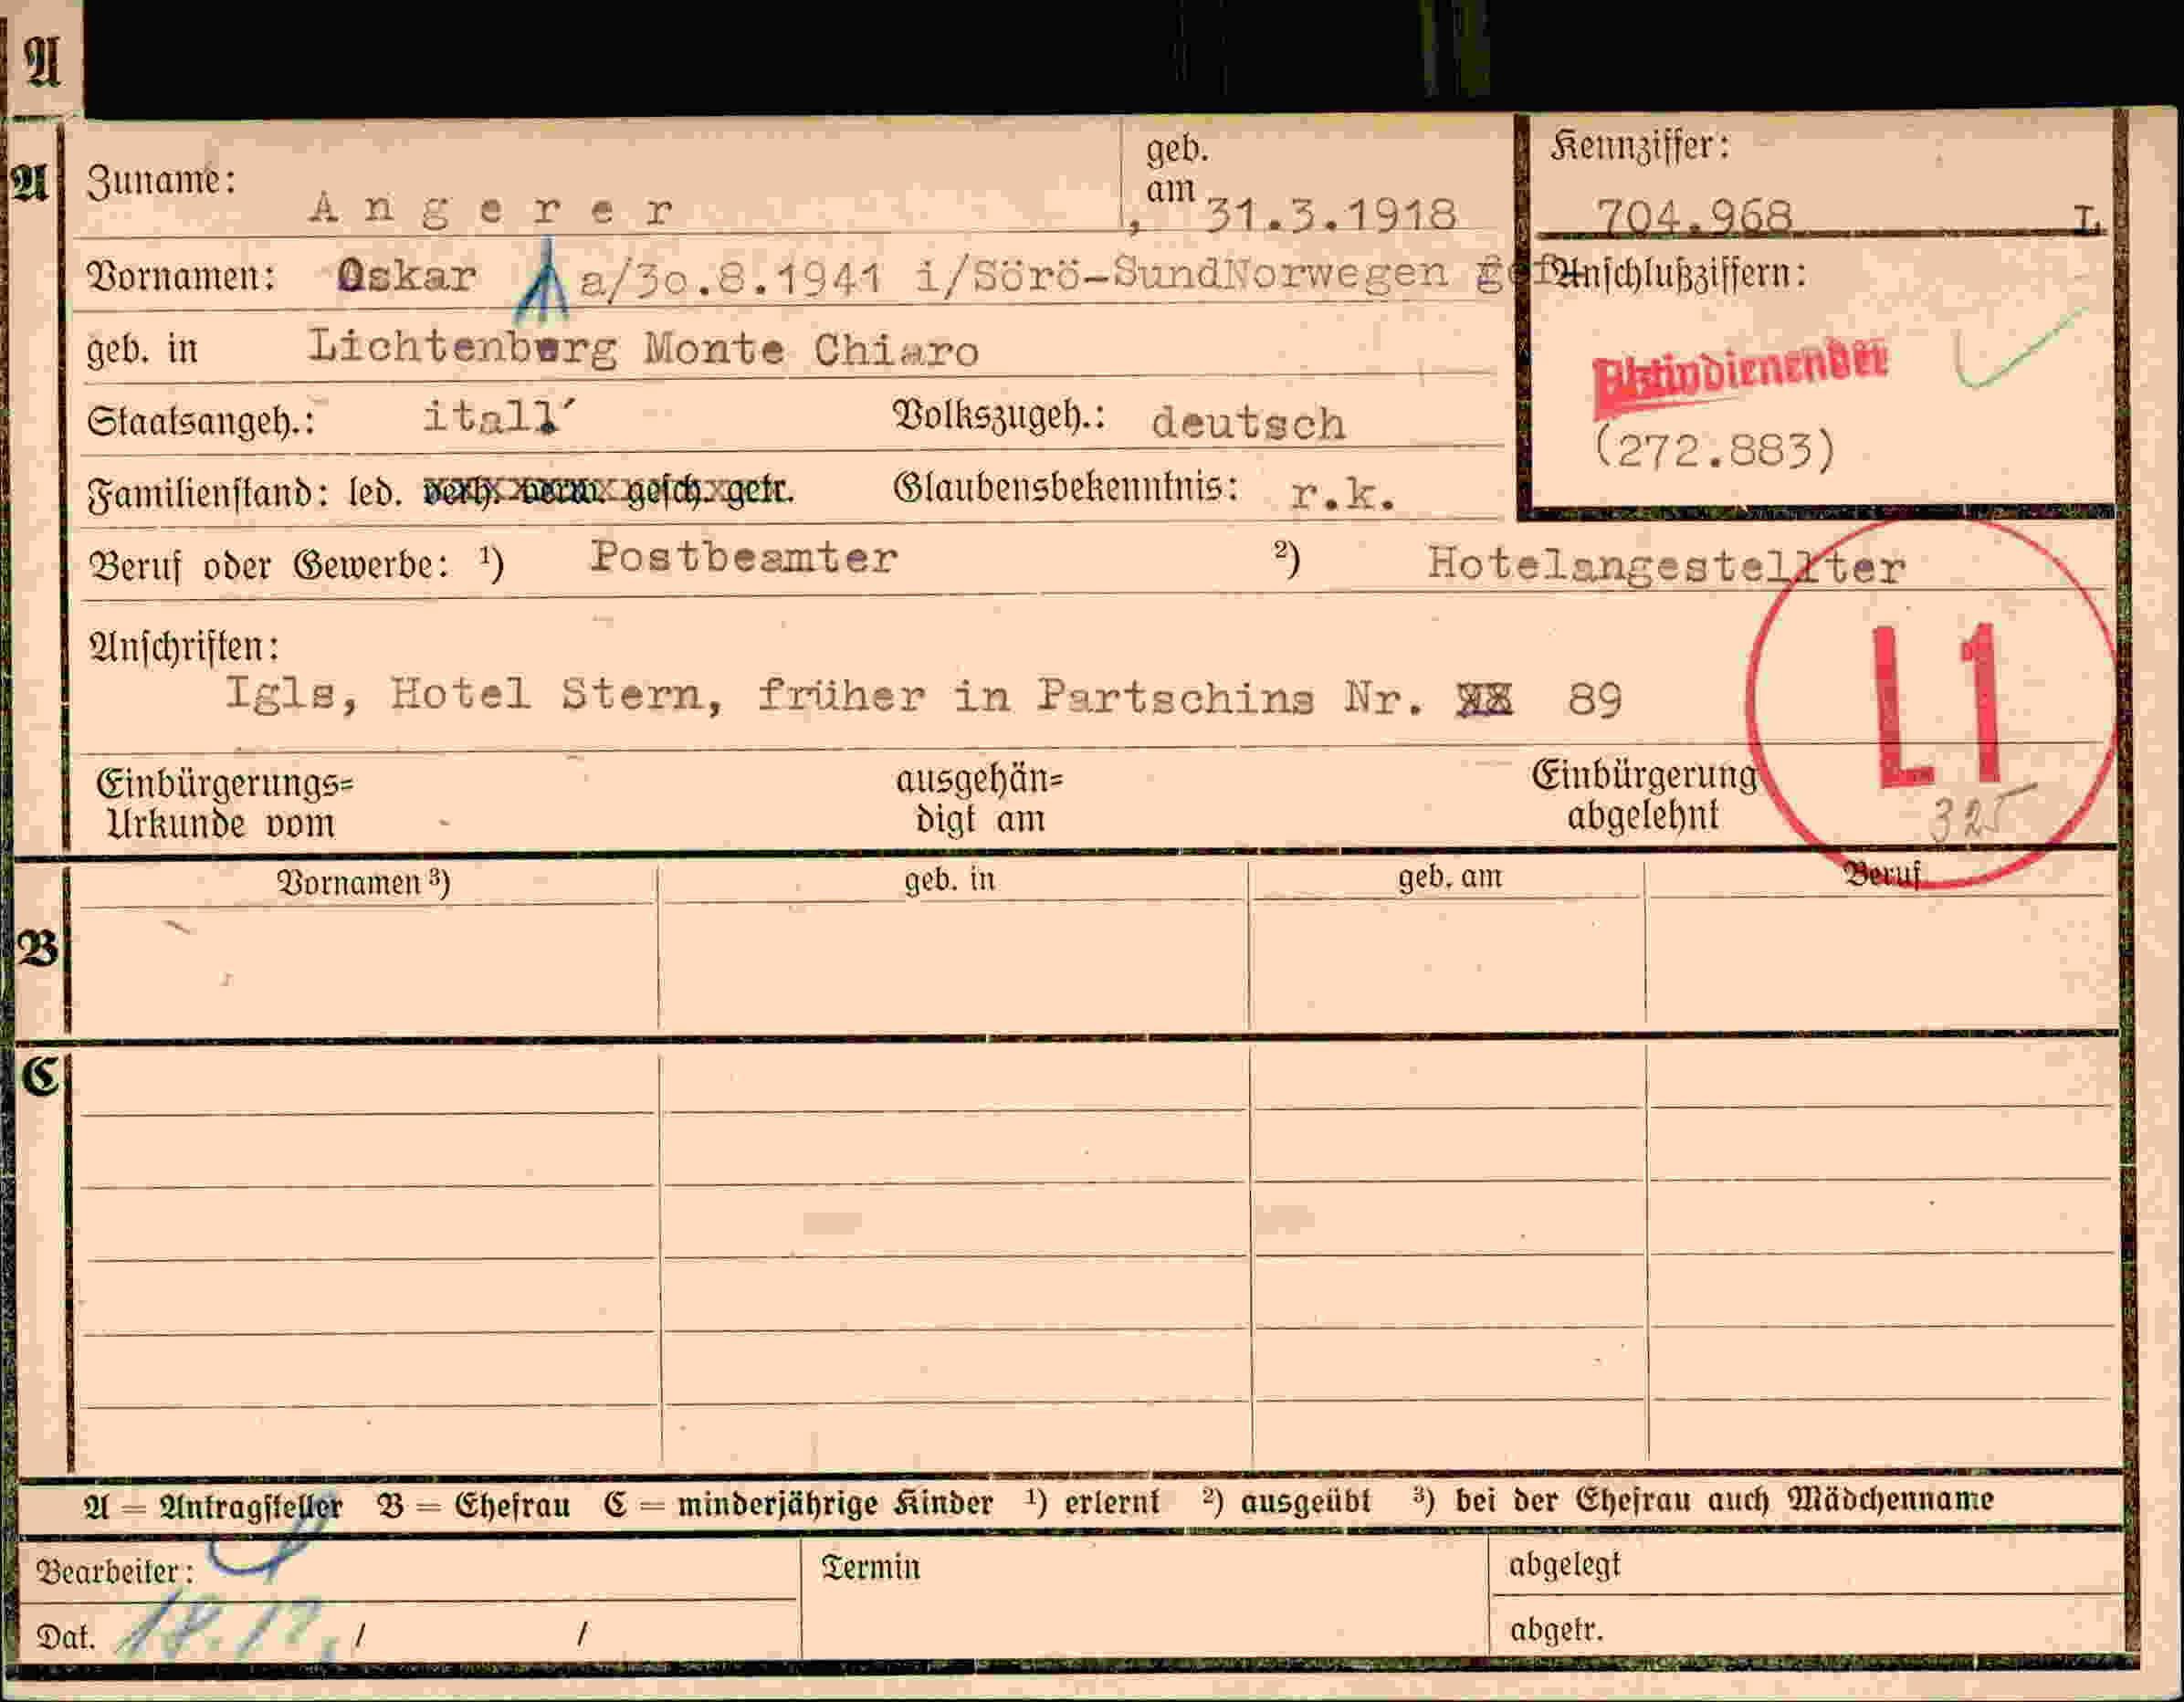 A
A
Zuname: Angerer geb. am 31.3.1918
Kennziffer: 704.968 I.
Vornamen: Oskar a/30.8.1941 i/Sörö-SundNorwegen gef
Anschlußziffern:
geb. in Lichtenberg Monte Chiaro
Aktivdienender
Staatsangeh.: itall´ Volkszugeh.: deutsch
(272.883)
Familienstand: led. verh. verw. gesch. getr. Glaubensbekenntnis: r.k.
Beruf oder Gewerbe: ¹) Postbeamter ²) Hotelangestellter
Anschriften:
Igls, Hotel Stern, früher in Partschins Nr. 89
L1
Einbürgerungs= ausgehän= Einbürgerung
Urkunde vom digt am abgelehnt
325
Vornamen ³) geb. in geb. am Beruf
B
C
A = Antragsteller B = Ehefrau C = minderjährige Kinder ¹) erlernt ²) ausgeübt ³) bei der Ehefrau auch Mädchenname
Bearbeiter: Termin abgelegt
Dat. 18.12. / / abgetr.